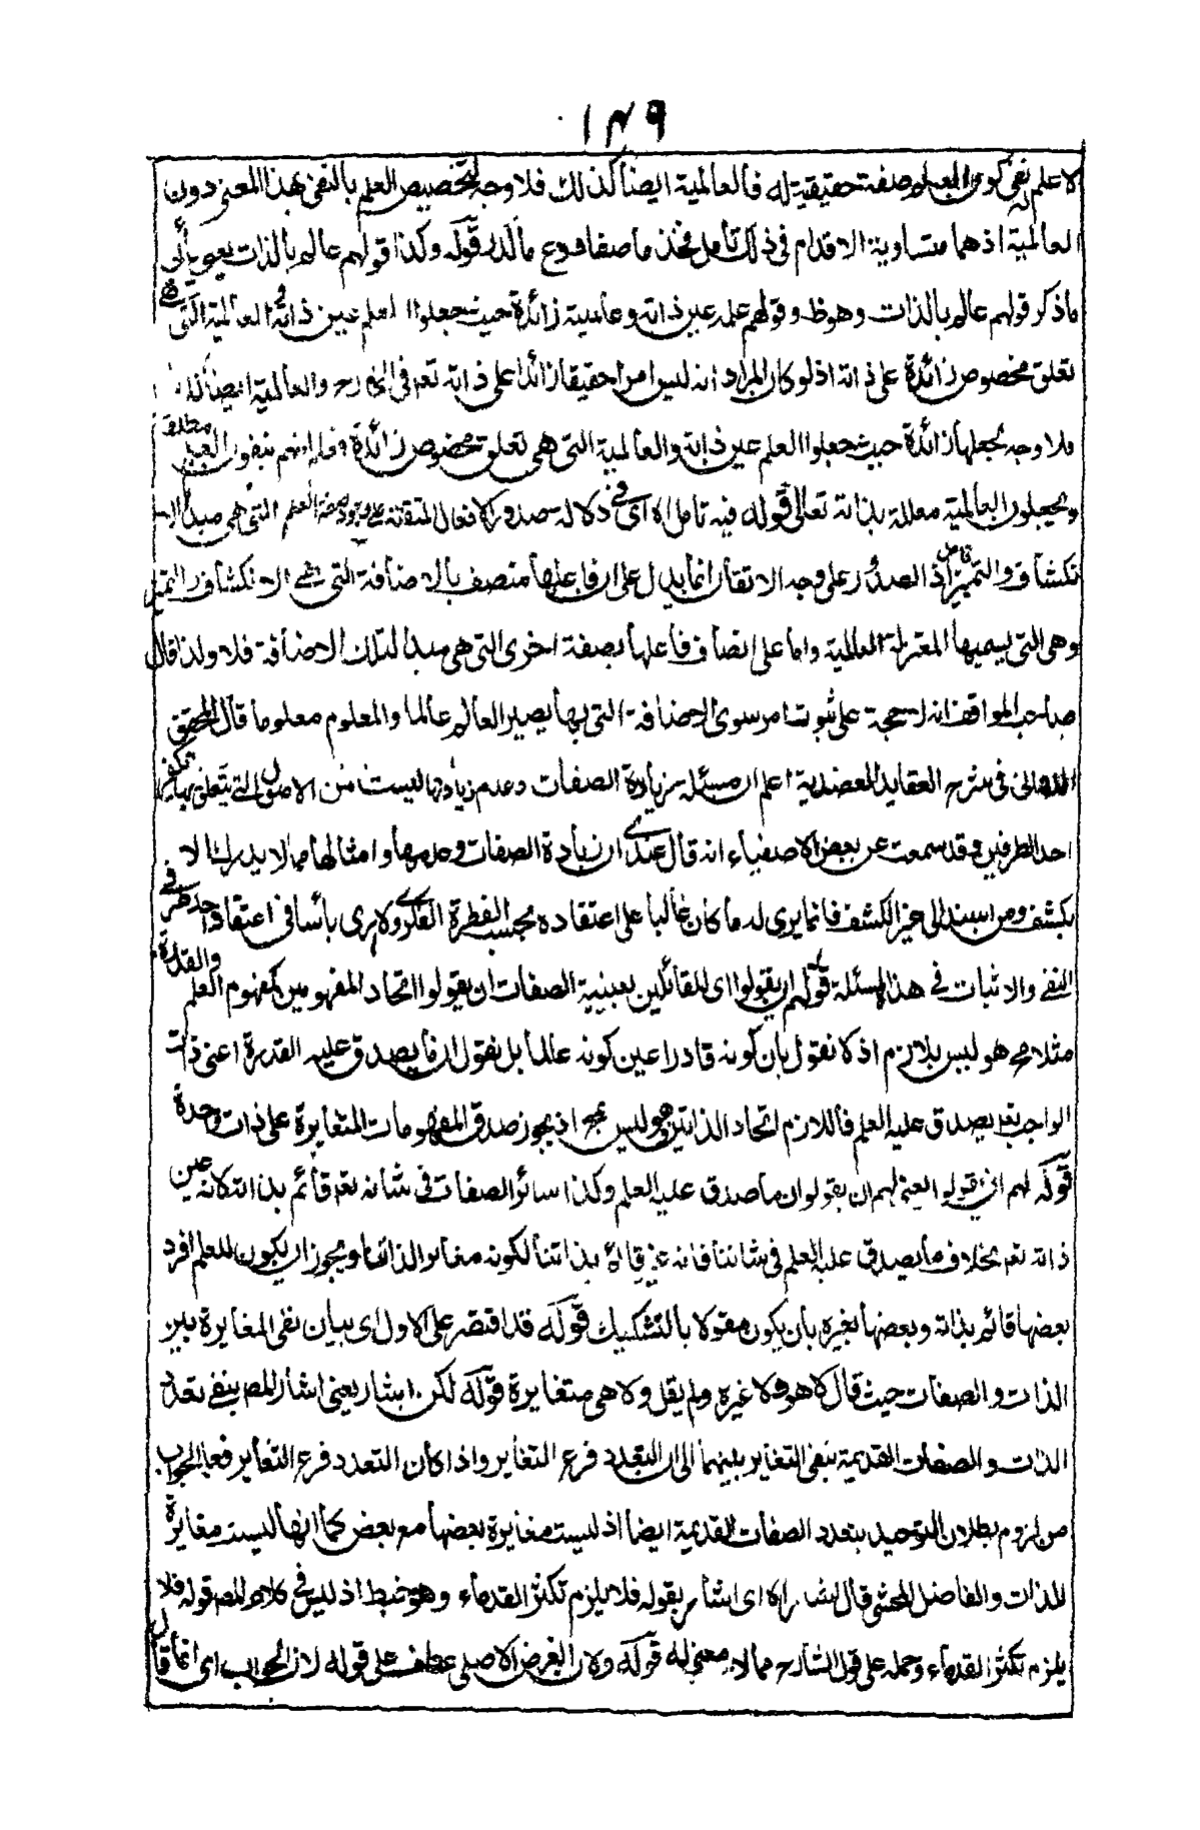 ١٤٩
لا علم له نفي كون العلم صفة حقيقية له فالعالمية ايضا كذلك فلا وجه لتخصيص العلم بالنفي بهذا المعنى دون
العالمية اذ هما متساوية الاقدام في ذلك تامل فخذ ما صفا ودع ما كدر قوله وكذا قولهم عالم بالذات يعني
ما ذكر قولهم عالم بالذات وهو ظ وقولهم علمه عين ذاته وعالميته زائدة حيث جعلوا العلم عين ذاته والعالمية التي هي
تعلق مخصوص زائدة على ذاته اذ لو كان المراد انه ليس امرا حقيقيا زائدا على ذاته تعه في الخارج والعالمية ايضا كذلك
فلا وجه لجعلها زائدة حيث جعلوا العلم عين ذاته والعالمية التي هي تعلق مخصوص زائدة فعلم انهم ينفون العلم مطلقا
ويجعلون العالمية معللة بذاته تعالى قوله فيه تامل اه اى في دلالة صدور الافعال المتقنة على وجود صفة العلم التي هي مبدأ الا
نكشاف والتميز تامل اذ الصدور على وجه الاتقان انما يدل على ان فاعلها متصف بالاضافة التي هي الانكشاف والتميز
وهي التي يسميها المعتزلة العالمية واما على اتصاف فاعلها بصفة اخرى التي هي مبدأ لتلك الاضافة فلا ولذا قال
صاحب المواقف انه لا حجة على ثبوت امر سوى الاضافة التي بها يصير العالم عالما والمعلوم معلوما قال المحقق
الدوانى في شرح العقايد العضدية اعلم ان مسئلة زيادة الصفات وعدم زيادتها ليست من الاصول التي يتعلق بها تكفير
احد الطرفين وقد سمعت عن بعض الاصفياء انه قال عندى ان زيادة الصفات وعدمها وامثالها مما لا يدرك الا
بكشف ومن اسنده الى غير الكشف فانما يرى له ما كان غالبا على اعتقاده بحسب النظر الفكرى ولا ارى بأسا في اعتقاد احد طرفي
النفي والاثبات في هذه المسئلة قوله لهم ان يقولوا اى للقائلين بعينية الصفات ان يقولوا اتحاد المفهومين كمفهوم العلم والقدرة
مثلا مح هو ليس بلازم اذ لا نقول بان كونه قادرا عين كونه عالما بل نقول ان ما يصدق عليه القدرة اعنى ذات
الواجب تعه يصدق عليه العلم فاللازم اتحاد الذاتين وهو ليس بمح اذ يجوز صدق المفهومات المتغايرة على ذات واحدة
قوله لهم ان يقولوا يعني لهم ان يقولوا ان ما صدق عليه العلم وكذا سائر الصفات في شانه تعه قائم بذاته لانه عين
ذاته تعه بخلاف ما يصدق عليه العلم في شاننا فانه غير قائم بذاتنا لكونه مغايرا لذاتنا ويجوز ان يكون للعلم افراد
بعضها قائم بذاته وبعضها بغيره بان يكون مقولا بالتشكيك قوله قد اقتصر على الاول اى بيان نفي المغايرة بين
الذات والصفات حيث قال لا هو ولا غيره ولم يقل ولا هي متغايرة قوله لكن اشار يعني اشار المص بنفي تعدد
الذات والصفات القديمة بنفي التغاير بينهما الى ان التعدد فرع التغاير واذا كان التعدد فرع التغاير فعلم الجواب
من لزوم بطلان التوحيد بتعدد الصفات القديمة ايضا اذ ليست مغايرة بعضها مع بعض كما انها ليست مغايرة
للذات والفاضل المحشى قال اشار اه اى اشار بقوله فلا يلزم تكثر القدماء وهو خبط اذ ليس في كلام المص قوله فلا
يلزم تكثر القدماء وحمله على قول الشارح مما لا معنى له قوله ولان الغرض الاصلى عطف على قوله لان الجواب اى انما قال